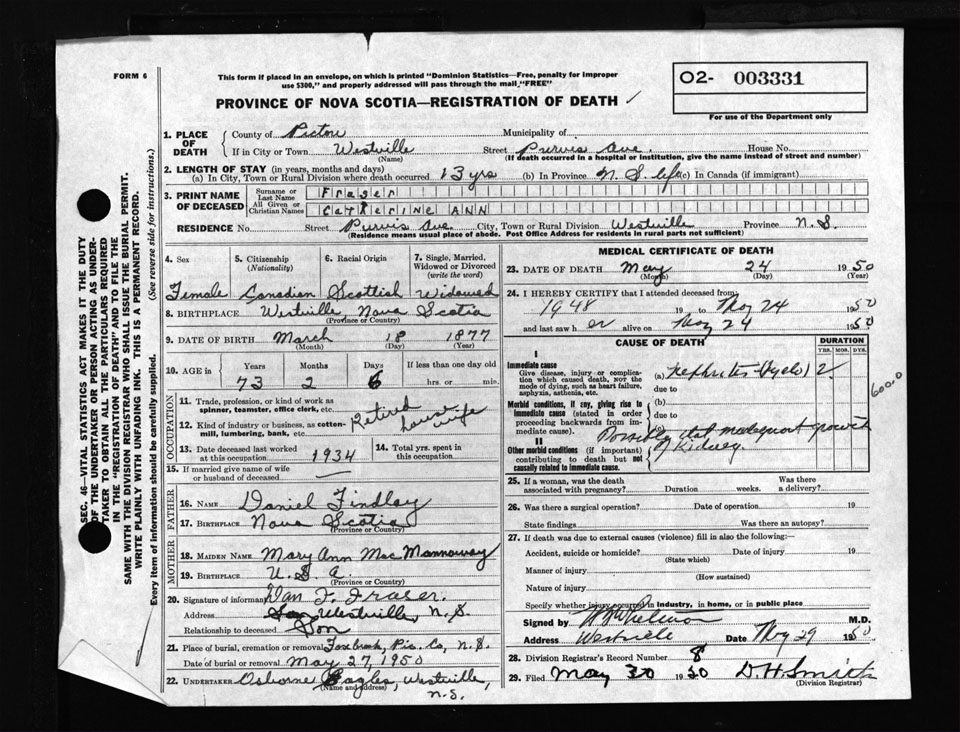 FORM 6
This form if placed in an envelope, on which is printed "Dominion Statistics—Free, penalty for improper
use $300," and properly addressed will pass through the mail "FREE"
O2- 003331
PROVINCE OF NOVA SCOTIA—REGISTRATION OF DEATH ✓
For use of the Department only
1. PLACE OF DEATH
County of Pictou Municipality of
If in City or Town Westville Street Purvis Ave. House No.
(Name) (If death occurred in a hospital or institution, give the name instead of street and number)
2. LENGTH OF STAY (in years, months and days)
(a) In City, Town or Rural Division where death occurred 13 yrs (b) In Province N.S. life (c) In Canada (if immigrant)
3. PRINT NAME OF DECEASED
Surname or Last Name Fraser
All Given or Christian Names CATHERINE ANN
RESIDENCE No. Street Purvis Ave. City, Town or Rural Division Westville Province N.S.
(Residence means usual place of abode. Post Office Address for residents in rural parts not sufficient)
4. Sex 5. Citizenship (Nationality) 6. Racial Origin 7. Single, Married, Widowed or Divorced (write the word)
Female Canadian Scottish Widowed
8. BIRTHPLACE Westville, Nova Scotia
(Province or Country)
9. DATE OF BIRTH March 18 1877
(Month) (Day) (Year)
10. AGE in Years Months Days If less than one day old
73 2 6 hrs. or min.
OCCUPATION
11. Trade, profession, or kind of work as spinner, teamster, office clerk, etc. Retired
12. Kind of industry or business, as cotton-mill, lumbering, bank, etc. housewife
13. Date deceased last worked at this occupation 1934
14. Total yrs. spent in this occupation
15. If married give name of wife or husband of deceased
FATHER
16. NAME Daniel Findlay
17. BIRTHPLACE Nova Scotia
(Province or Country)
MOTHER
18. MAIDEN NAME Mary Ann Mac Mannaway
19. BIRTHPLACE U.S.A.
(Province or Country)
20. Signature of informant Dan F. Fraser.
Address Westville, N.S.
Relationship to deceased Son
21. Place of burial, cremation or removal Foxbrook, Pic. Co, N.S.
Date of burial or removal May 27, 1950
22. UNDERTAKER Osborne Eagles, Westville, N.S.
(Name and address)
MEDICAL CERTIFICATE OF DEATH
23. DATE OF DEATH May 24 1950
(Month) (Day) (Year)
24. I HEREBY CERTIFY that I attended deceased from
1948 19 to May 24 1950
and last saw her alive on May 24 1950
CAUSE OF DEATH DURATION
YRS. MOS. DYS.
I
Immediate cause
Give disease, injury or complication which caused death, not the mode of dying, such as heart failure, asphyxia, asthenia, etc.
(a) Nephritis (Pyelo) 2
due to
Morbid conditions, if any, giving rise to immediate cause (stated in order proceeding backwards from immediate cause).
(b)
due to
(c)
II
Other morbid conditions (if important) contributing to death but not causally related to immediate cause.
Possibly malignant growth
of Kidney.
600.0
25. If a woman, was the death associated with pregnancy? Duration weeks. Was there a delivery?
26. Was there a surgical operation? Date of operation 19
State findings Was there an autopsy?
27. If death was due to external causes (violence) fill in also the following:—
Accident, suicide or homicide? Date of injury 19
(State which)
Manner of injury
(How sustained)
Nature of injury
Specify whether injury occurred in industry, in home, or in public place
Signed by M.D.
Address Westville Date May 29 1950
28. Division Registrar's Record Number 8
29. Filed May 30 1950 D.H. Smith
(Division Registrar)
SEC. 46—VITAL STATISTICS ACT MAKES IT THE DUTY
OF THE UNDERTAKER OR PERSON ACTING AS UNDER-
TAKER TO OBTAIN ALL THE PARTICULARS REQUIRED
IN THE "REGISTRATION OF DEATH" AND TO FILE THE
SAME WITH THE DIVISION REGISTRAR WHO SHALL ISSUE THE BURIAL PERMIT.
WRITE PLAINLY WITH UNFADING INK. THIS IS A PERMANENT RECORD.
Every item of information should be carefully supplied. (See reverse side for instructions.)